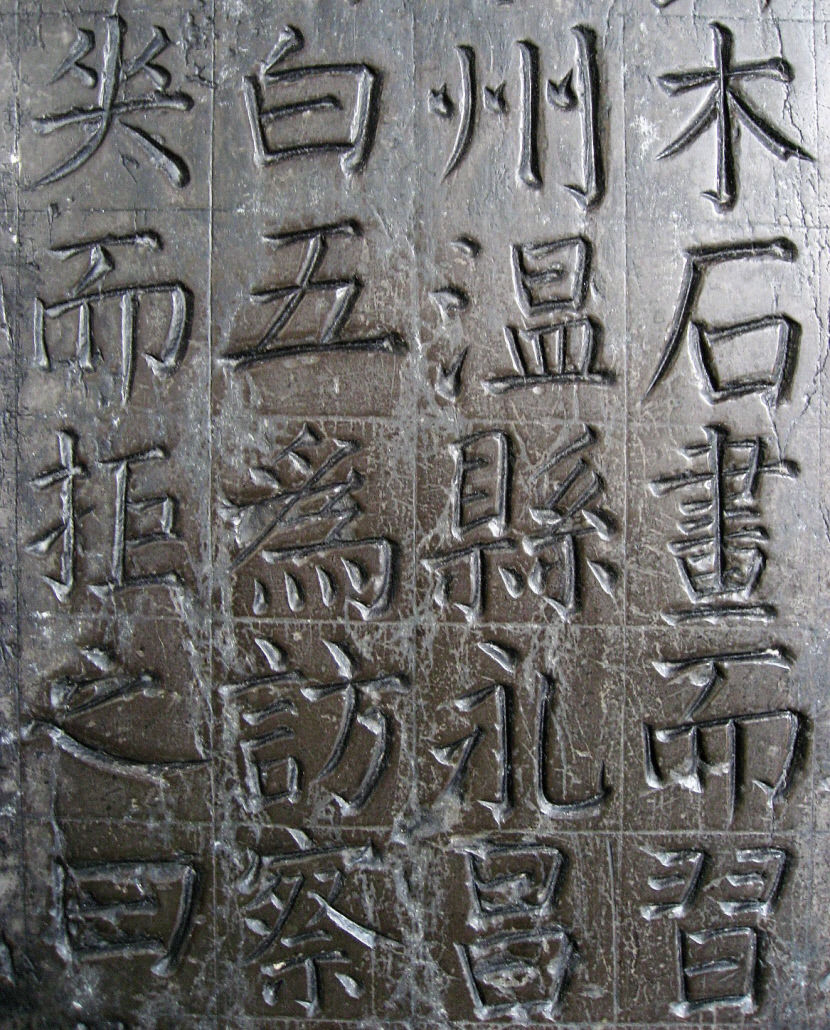 木石畫而習
州温縣永昌
白五爲訪察
笑而拒之曰